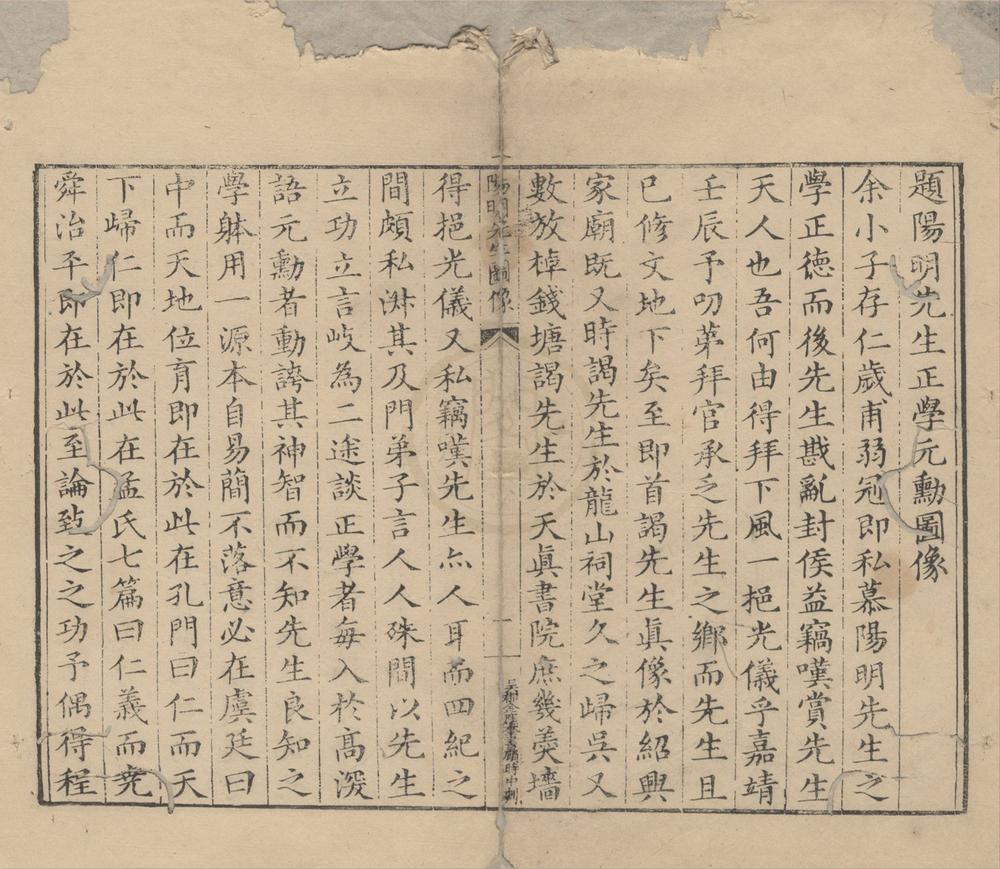 題陽明先生正學元勳圖像
余小子存仁歲甫弱冠即私慕陽明先生之
學正德而後先生戡亂封侯益竊嘆賞先生
天人也吾何由得拜下風一挹光儀乎嘉靖
壬辰予叨第拜官承乏先生之鄉而先生且
已修文地下矣至即首謁先生眞像於紹興
家廟既又時謁先生於龍山祠堂久之歸吳又
數放棹錢塘謁先生於天眞書院庶幾羮墻
陽明先生圖像
一
得挹光儀又私竊嘆先生亦人耳而四紀之
間頗私淑其及門弟子言人人殊間以先生
立功立言岐為二途談正學者每入於高深
語元勳者動誇其神智而不知先生良知之
學躰用一源本自易簡不落意必在虞廷曰
中而天地位育即在於此在孔門曰仁而天
下歸仁即在於此在孟氏七篇曰仁義而尭
舜治平即在於此至論致之之功予偶得程